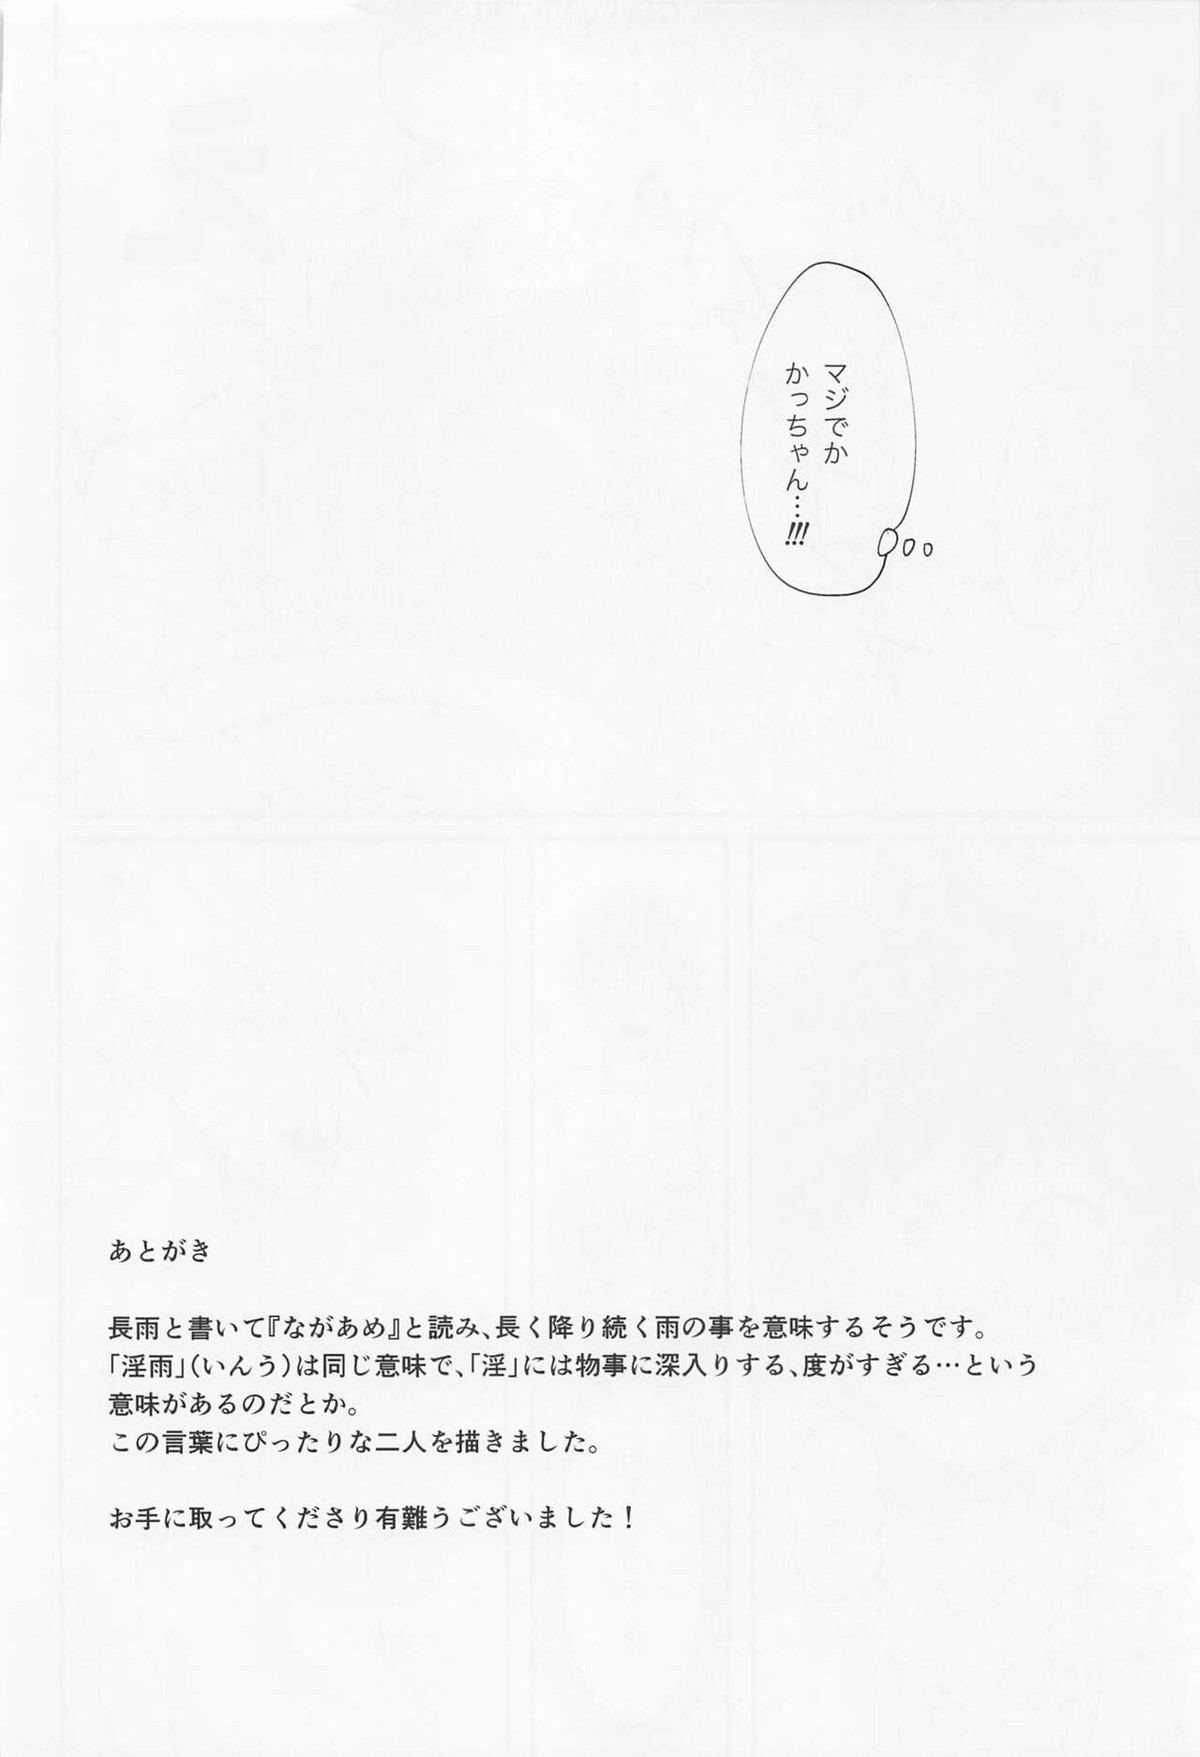 マジでか
かっちゃん…!!!
あとがき
長雨と書いて『ながあめ』と読み、長く降り続く雨の事を意味するそうです。
「淫雨」（いんう）は同じ意味で、「淫」には物事に深入りする、度がすぎる…という
意味があるのだとか。
この言葉にぴったりな二人を描きました。
お手に取ってくださり有難うございました！